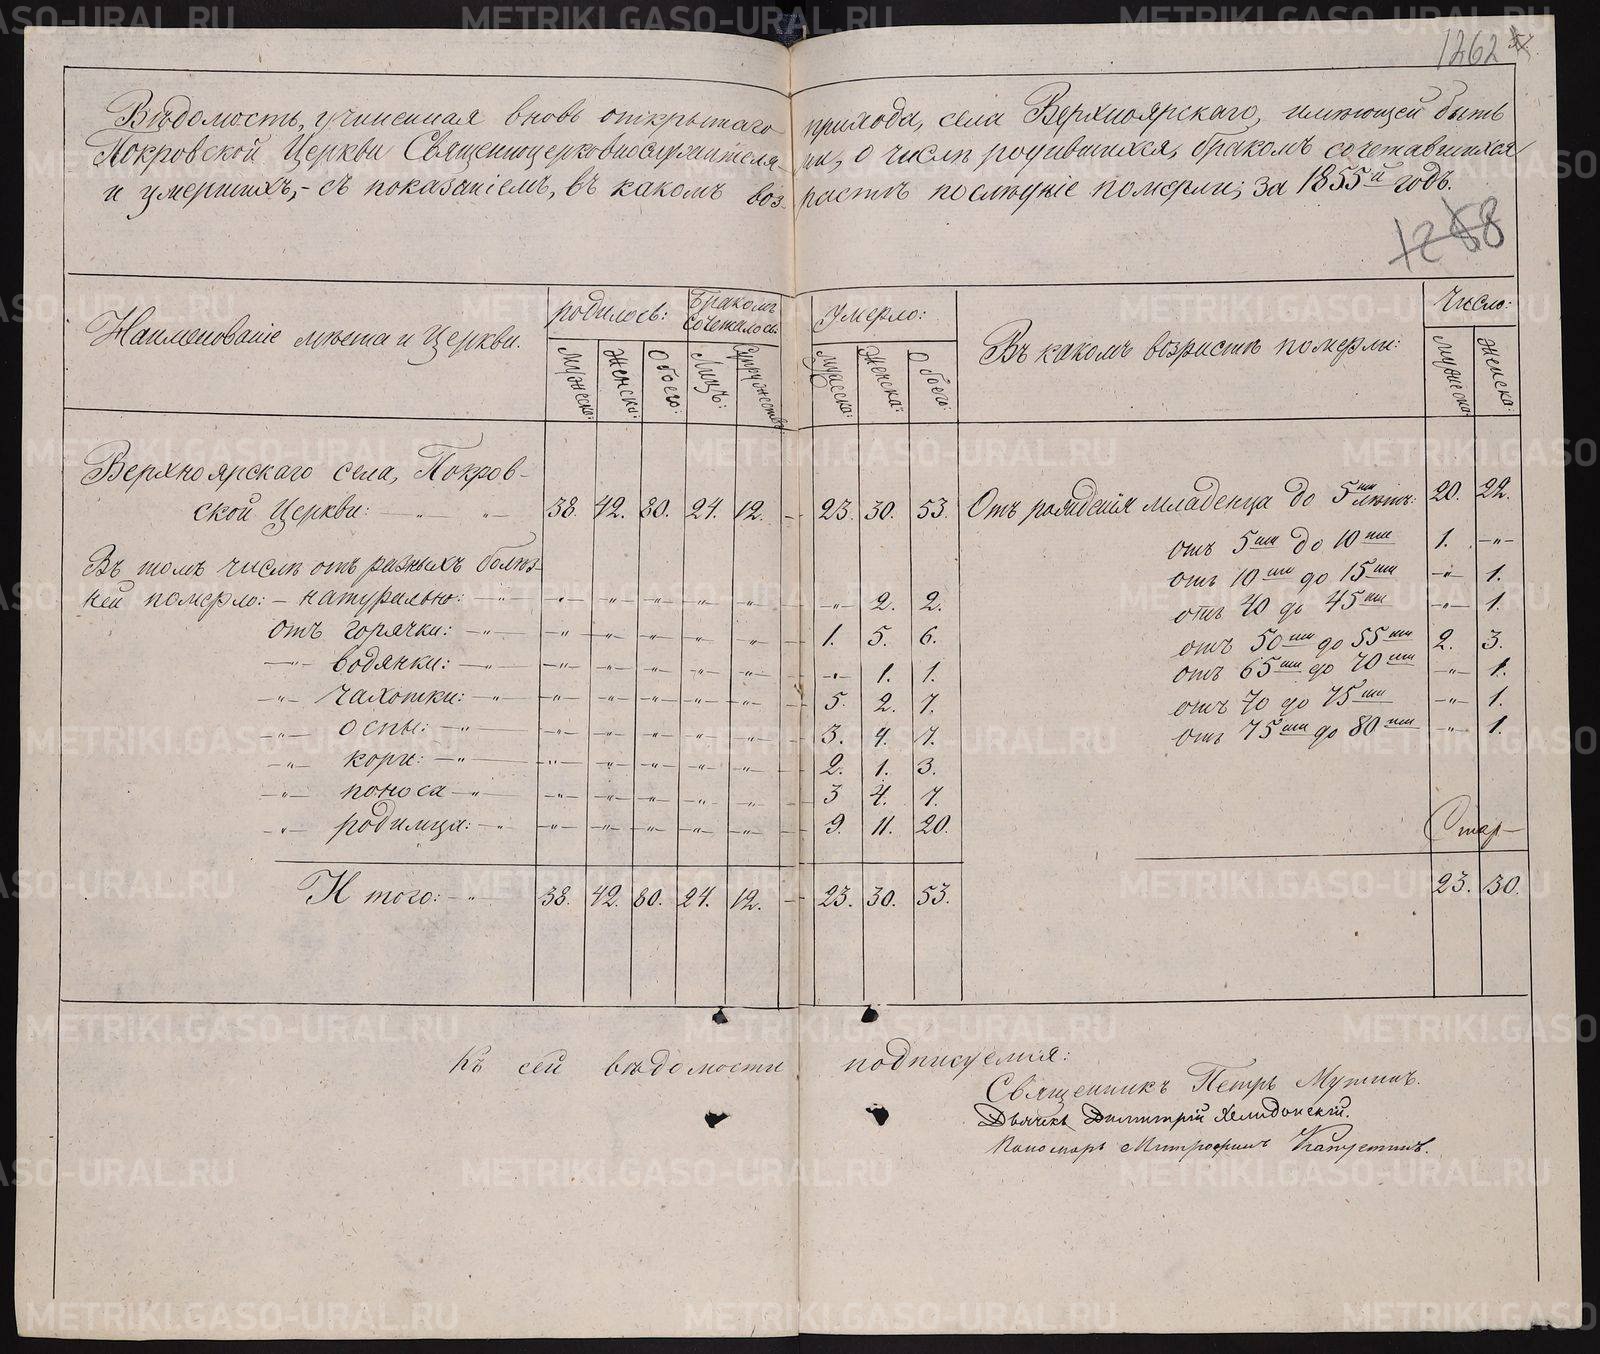 1262
Вѣдомость, учиненная вновь открытаго прихода, села Верхнюярскаго, имѣющей быть
Покровской Церкви Священноцерковнослужителями, о числѣ родившихся, бракомъ сочетавшихся
и умершихъ, - съ показаніемъ, въ какомъ возрастѣ послѣдніе померли; за 1855й годъ.
1258
Наименованіе мѣста и Церкви.
родилось:
Бракомъ сочеталось:
Умерло:
Въ какомъ возрастѣ померли:
Число:
Мужеска: Женска: Обоего: Лицъ: Супружествъ: Мужеска: Женска: Обоего: Мужеска: Женска:
Верхнюярскаго села, Покров-
ской Церкви: — „ — „ 38. 42. 80. 24. 12. — 23. 30. 53. Отъ рожденія младенца до 5ти лѣтъ: 20. 22.
отъ 5ти до 10ти 1. —„—
Въ томъ числѣ отъ разныхъ болѣз-
отъ 10ти до 15ти —„— 1.
ней померло: - натурально: —„— —„— —„— —„— —„— —„— —„— 2. 2. отъ 40 до 45ти —„— 1.
отъ горячки: —„— —„— —„— —„— —„— —„— 1. 5. 6. отъ 50ти до 55ти 2. 3.
—„— водянки: —„— —„— —„— —„— —„— —„— —„— 1. 1. отъ 65ти до 70ти —„— 1.
—„— чахотки: —„— —„— —„— —„— —„— —„— 5. 2. 7. отъ 70 до 75ти —„— 1.
—„— оспы: —„— —„— —„— —„— —„— —„— 3. 4. 7. отъ 75ти до 80ти —„— 1.
—„— кори: —„— —„— —„— —„— —„— —„— 2. 1. 3.
—„— поноса —„— —„— —„— —„— —„— —„— 3 4. 7.
—„— родимца: —„— —„— —„— —„— —„— —„— 9. 11. 20.
Итого: —„ 38. 42. 80. 24. 12. — 23. 30. 53. 23. 30.
Къ сей вѣдомости подписуемся:
Священникъ Петръ Мутинъ.
Дьячекъ Димитрій Хелидонскій.
Пономарь Митрофанъ Капустинъ.
METRIKI.GASO-URAL.RU